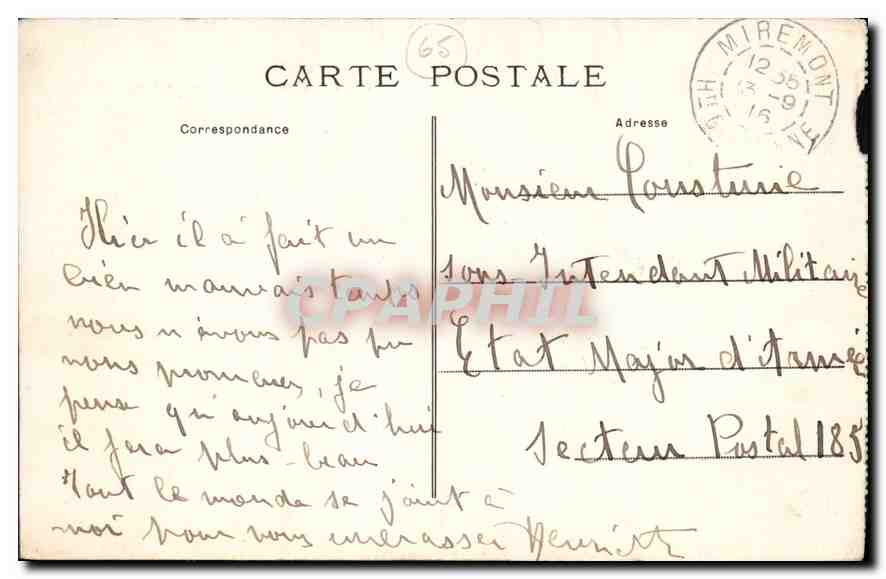 65
CARTE POSTALE
MIREMONT
12 35
13 -9
16
Correspondance
Adresse
Hier il a fait un
bien mauvais temps
nous n'avons pas pu
nous promener, je
pense qu'aujourd'hui
il fera plus beau
Tout le monde se joint à
moi pour vous embrasser Henriette
Monsieur Cousturie
sous-Intendant Militaire
Etat Major d'Armée
Secteur Postal 185
CPAPHIL